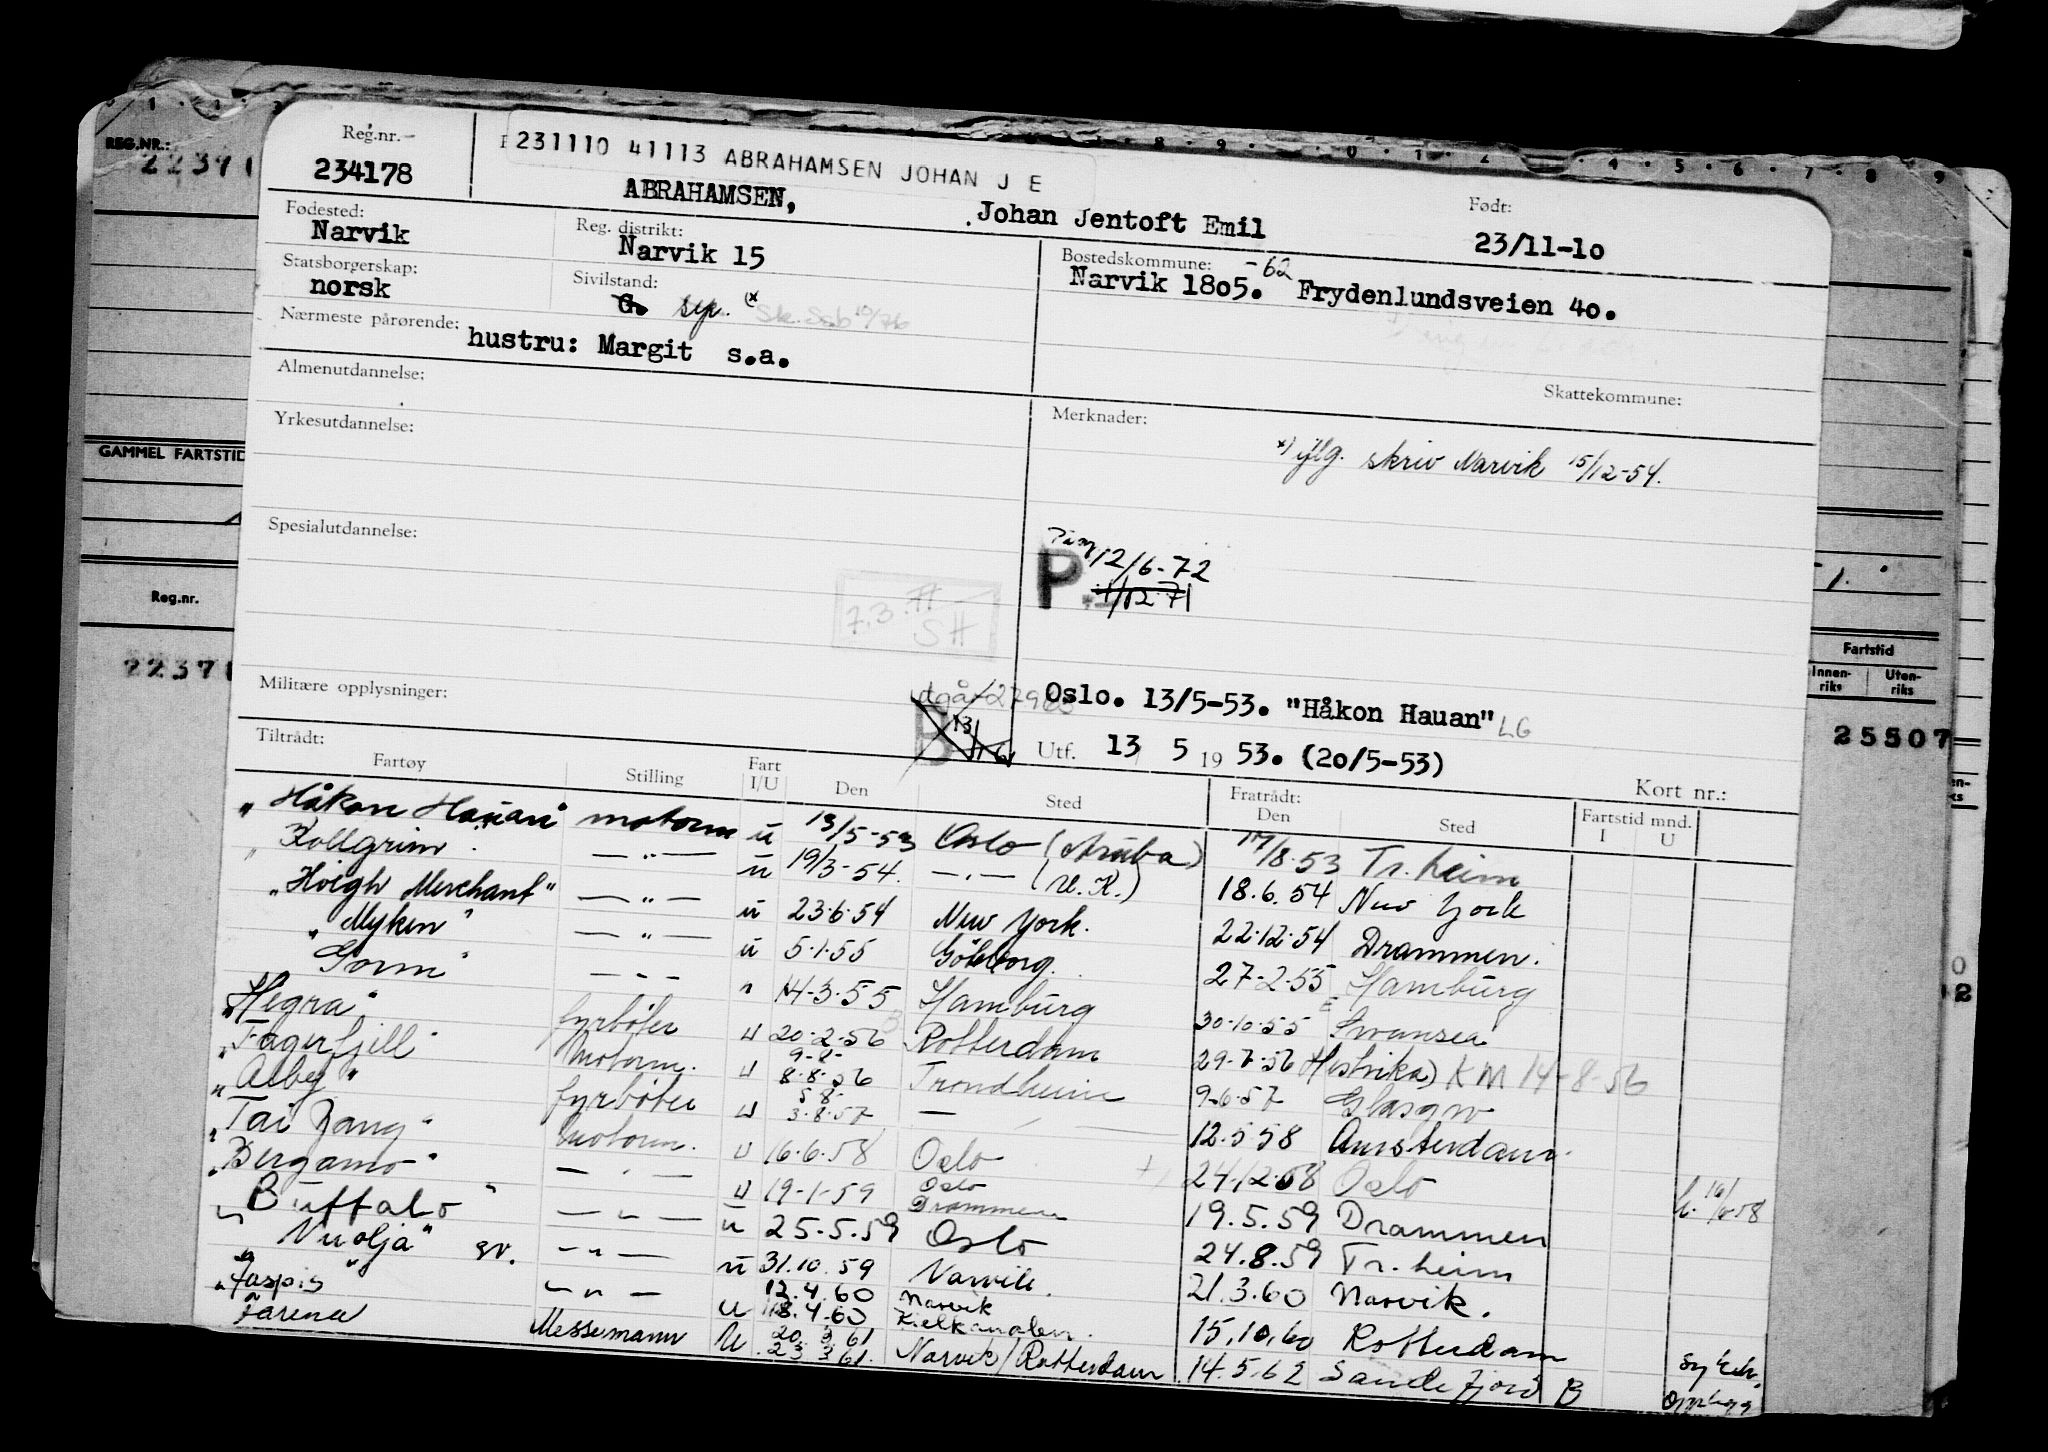 REG.NR.:
Reg.nr.
234178
231110 41113 ABRAHAMSEN JOHAN J E
ABRAHAMSEN, Johan Jentoft Emil
Født:
23/11-10
Fødested:
Narvik
Reg. distrikt:
Narvik 15
Bostedskommune:
Narvik 1805. -62 Frydenlundsveien 40.
Statsborgerskap:
norsk
Sivilstand:
G. sep. (x
Nærmeste pårørende:
hustru: Margit s.a.
Skattekommune:
Almenutdannelse:
Yrkesutdannelse:
Merknader:
x) iflg. skriv Narvik 15/12-54.
GAMMEL FARTSTID
Spesialutdannelse:
P 12/6-72
1/12-71
7.3.77
SH
Reg.nr.
Fartstid
Innen-riks Uten-riks
25507
Militære opplysninger:
Oslo. 13/5-53. "Håkon Hauan" LG
Utf. 13 5 1953. (20/5-53)
Kort nr.:
Tiltrådt:
Fartøy Stilling Fart I/U Den Sted Fratrådt: Den Sted Fartstid mnd. I U
"Håkon Hauan" motorm u 13/5-53 Oslo (Aruba) 17/8-53 Tr.heim
"Kollgrim" —"— u 19/3-54. —"— (U.K.) 18.6.54 New York
"Høigh Merchant" —"— u 23.6.54 New York. 22.12.54 Drammen.
"Myken" —"— u 5.1.55 Göteborg. 27-2-55 Hamburg
"Gorm" —"— " 14-3-55 Hamburg 30-10-55 Swansea
"Hegra" fyrbøter u 20-2-56 Rotterdam 29-7-56 KM 14-8-56
"Fagerfjell" Motorm. u 9-8- 8-8-56 Trondheim 9-6-57 Glasgow
"Alby" fyrbøter u 5 8- 3-8-57 — 12.5 58 Amsterdam
"Tai Yang" Motorm. u 16-6-58 Oslo 24-12-58 Oslo
"Bergamo" —"— u 19-1-59 Oslo Drammen 19.5.59 Drammen
"Buffalo" —"— u 25-5-59 Oslo 24.8.59 Tr.heim
"Nuolja" —"— u 31.10.59 Narvik. 21.3.60 Narvik.
"Jaspis" —"— u 12.4.60 18.4.60 Narvik Kielkanalen. 15.10.60 Rotterdam
Farena Messemann U 20 3 61 23 3 61. Narvik/Rotterdam 14.5.62 Sandefjord B Opplagg